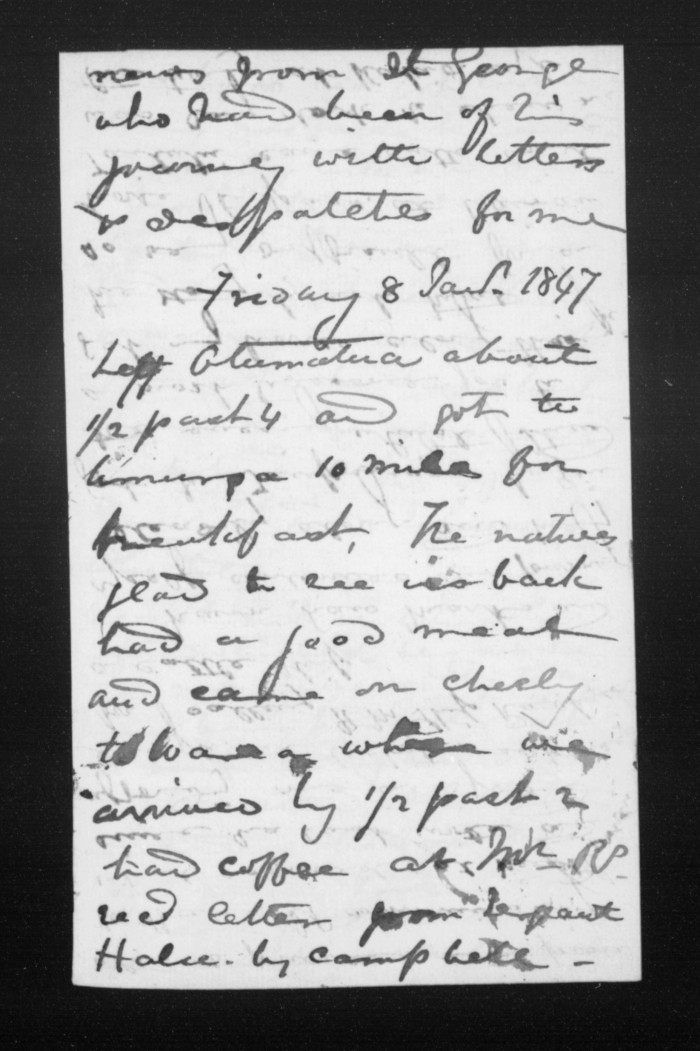 news from St George
who had been of his
journey with letters
& despatches for me
Friday 8 Jany. 1847
Left Otumatua about
1/2 past 4 and got to
10 mile for
breakfast, The natives
glad to see us back
had a good meal
and came on cheerly
to Wara where we
arrived by 1/2 past 2
had coffee at Mr Rs
recd letter from Sergeant
Halse. by campbell -